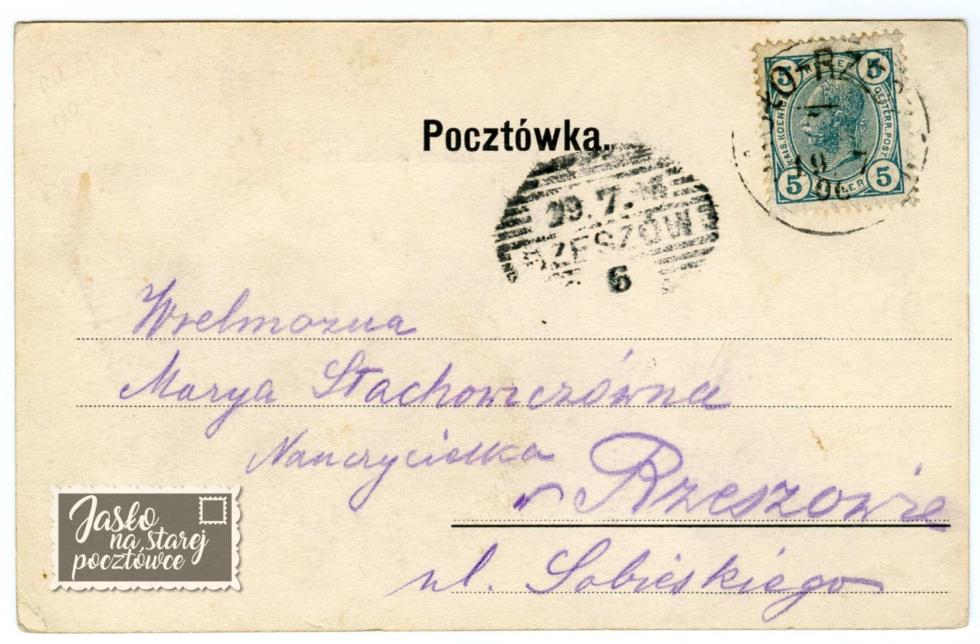 Pocztówka.
5 5
KAIS. KOENIGL. OESTERR. POST
5 5
19 7
06
29. 7.
RZESZÓW
6
Wielmożna
Marya Stachowiczówna
Nauczycielka
w Rzeszowie
ul. Sobieskiego
Jasło
na starej
pocztówce